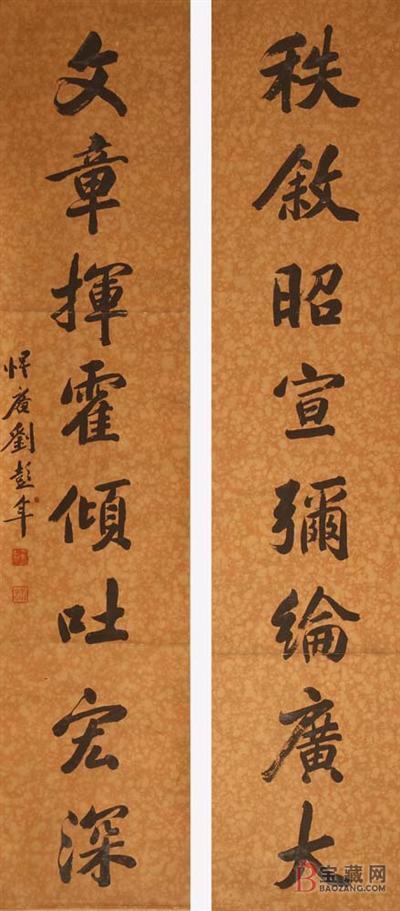 秩敘昭宣彌綸廣大
文章揮霍傾吐宏深
劉彭年
宝藏网
BAOZANG.COM